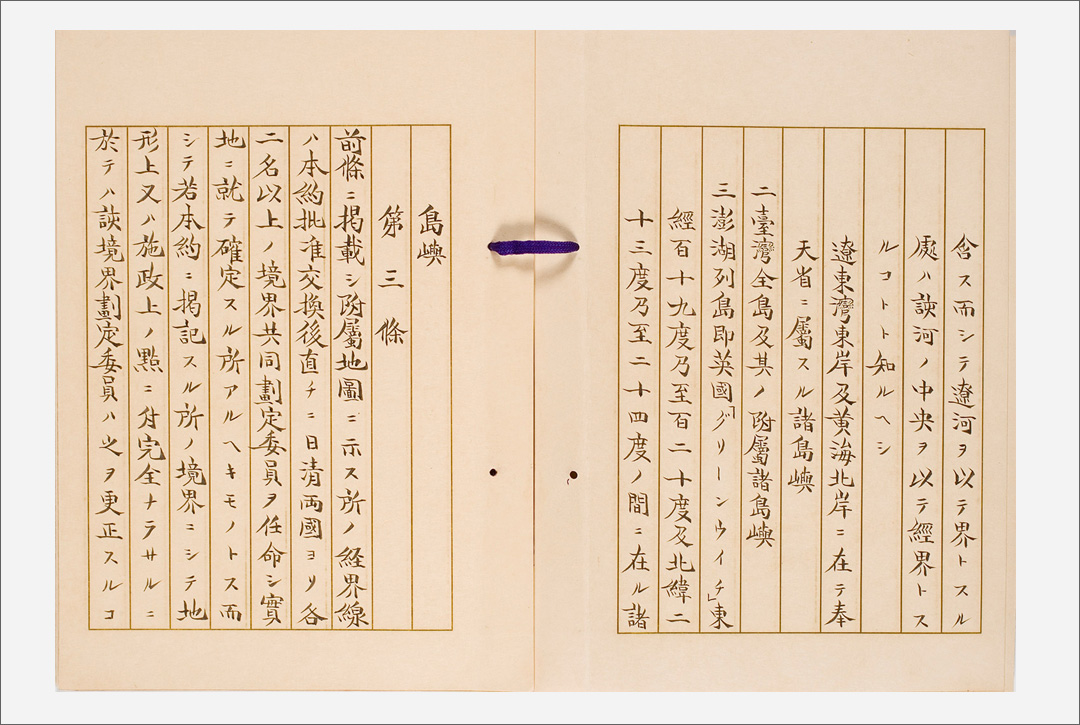 含ス而シテ遼河ヲ以テ界トスル
處ハ該河ノ中央ヲ以テ經界トス
ルコトト知ルヘシ
遼東灣東岸及黄海北岸ニ在テ奉
天省ニ屬スル諸島嶼
二臺灣全島及其ノ附屬諸島嶼
三澎湖列島即英國「グリーンウイチ」東
經百十九度乃至百二十度及北緯二
十三度乃至二十四度ノ間ニ在ル諸
島嶼
第三條
前條ニ掲載シ附屬地圖ニ示ス所ノ経界線
ハ本約批准交換後直チニ日清兩國ヨリ各
二名以上ノ境界共同劃定委員ヲ任命シ實
地ニ就テ確定スル所アルヘキモノトス而
シテ若本約ニ掲記スル所ノ境界ニシテ地
形上又ハ施政上ノ點ニ付完全ナラサルニ
於テハ該境界劃定委員ハ之ヲ更正スルコ